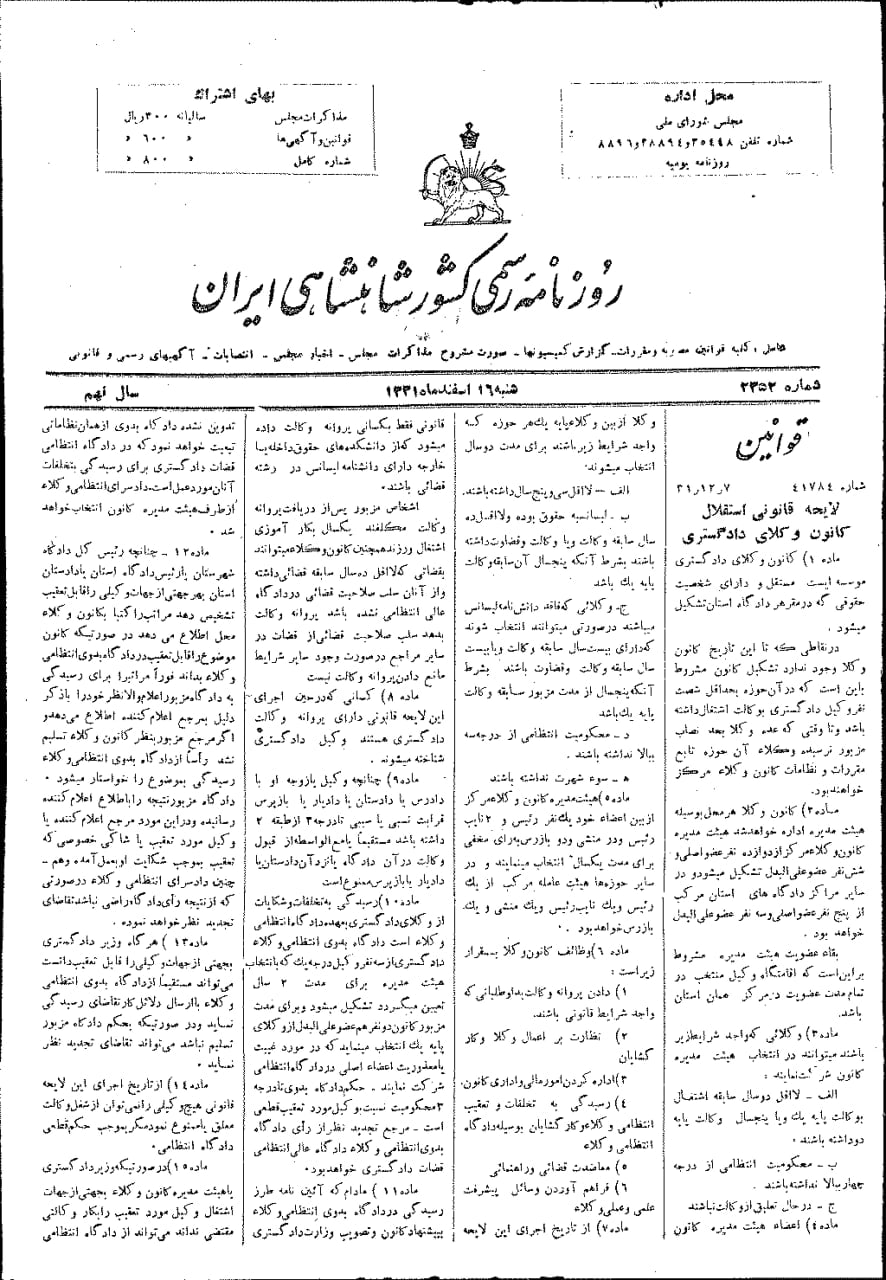 محل اداره
مجلس شورای ملی
شماره تلفن ۳۵۴۴۸و۳۸۸۹۴و۸۸۹۶
روزنامه یومیه
بهای اشتراك
مذاکرات مجلس سالیانه ۳۰۰ ریال
قوانین و آگهی‌ها » ۶۰۰ »
شماره کامل » ۸۰۰ »
روزنامه رسمی کشور شاهنشاهی ایران
شامل : کلیه قوانین مصوبه و مقررات - گزارش کمیسیونها - صورت مشروح مذاکرات مجلس - اخبار مجلس - انتصابات - آگهیهای رسمی و قانونی
شماره ۲۳۵۲
شنبه ۱۶ اسفند ماه ۱۳۳۱
سال نهم
قوانین
شماره ۴۱۷۸۴ ۳۱٫۱۲٫۷
لایحه قانونی استقلال
کانون وکلای دادگستری
ماده ۱) کانون وکلای دادگستری
موسسه ایست مستقل و دارای شخصیت
حقوقی که در مقر هر دادگاه استان تشکیل
میشود .
در نقاطی که تا این تاریخ کانون
وکلا وجود ندارد تشکیل کانون مشروط
باین است که در آن حوزه بحداقل شصت
نفر وکیل دادگستری بوکالت اشتغال داشته
باشد و تا وقتی که عده وکلا بحد نصاب
مزبور نرسیده وکلاء آن حوزه تابع
مقررات و نظامات کانون وکلاء مرکز
خواهند بود.
ماده۲) کانون وکلا هر محل بوسیله
هیئت مدیره اداره خواهد شد هیئت مدیره
کانون وکلاء مرکز از دوازده نفر عضو اصلی و
شش نفر عضو علی البدل تشکیل میشود و در
سایر مراکز دادگاه های استان مرکب
از پنج نفر عضو اصلی و سه نفر عضو علی البدل
خواهد بود .
بقاء عضویت هیئت مدیره مشروط
براین است که اقامتگاه وکیل منتخب در
تمام مدت عضویت در مرکز همان استان
باشد.
ماده۳) وکلائی که واجد شرایط زیر
باشند میتوانند در انتخاب هیئت مدیره
کانون شرکت نمایند :
الف - لااقل دو سال سابقه اشتغال
بوکالت پایه یك و یا پنجسال وکالت پایه
دو داشته باشند .
ب - محکومیت انتظامی از درجه
چهار ببالا نداشته باشند.
ج - در حال تعلیق از وکالت نباشند
ماده۴) اعضاء هیئت مدیره کانون
وکلا از بین وکلاء پایه یك هر حوزه که
واجد شرایط زیر باشند برای مدت دو سال
انتخاب میشوند
الف - لااقل سی و پنج سال داشته باشند.
ب - لیسانسیه حقوق بوده ولااقل ده
سال سابقه وکالت ویا وکالت وقضاوت داشته
باشند بشرط آنکه پنجسال آن سابقه وکالت
پایه یك باشد
ج- وکلائی که فاقد دانش نامه لیسانس
میباشند درصورتی میتوانند انتخاب شوند
که دارای بیست سال سابقه وکالت ویا بیست
سال سابقه وکالت وقضاوت باشند بشرط
آنکه پنجسال از مدت مزبور سابقه وکالت
پایه یك باشد
د - محکومیت انتظامی از درجه سه
ببالا نداشته باشند .
ه - سوء شهرت نداشته باشند
ماده۵) هیئت مدیره کانون وکلاء مرکز
از بین اعضاء خود یك نفر رئیس و ۲ نایب
رئیس ودر منشی ودو بازرس به رای مخفی
برای مدت یکسال انتخاب مینمایند و در
سایر حوزه‌ها هیئت عامله مرکب از یك
رئیس ویك نایب رئیس ویك منشی و یك
بازرس خواهد بود .
ماده ۶) وظائف کانون وکلا بقرار
زیر است :
۱) دادن پروانه وکالت بداوطلبانی که
واجد شرایط قانونی باشند.
۲) نظارت بر اعمال وکلا وکار
گشایان
۳) اداره کردن امور مالی واداری کانون.
۴) رسیدگی به تخلفات و تعقیب
انتظامی وکلاء وکارگشایان بوسیله دادگاه
انتظامی وکلاء
۵) معاضدت قضائی وراهنمائی
۶) فراهم آوردن وسائل پیشرفت
علمی وعملی وکلاء
ماده۷) از تاریخ اجرای این لایحه
قانونی فقط بکسانی پروانه وکالت داده
میشود که از دانشکده‌های حقوق داخله یا
خارجه دارای دانشنامه لیسانس در رشته
قضائی باشند .
اشخاص مزبور پس از دریافت پروانه
وکالت مکلفند یکسال بکار آموزی
اشتغال ورزند همچنین کانون وکلاء میتوانند
بقضاتی که لااقل ده سال سابقه قضائی داشته
واز آنان سلب صلاحیت قضائی در دادگاه
عالی انتظامی نشده باشد پروانه وکالت
بدهد سلب صلاحیت قضائی از قضات در
سایر مراجع درصورت وجود سایر شرایط
مانع دادن پروانه وکالت نیست
ماده ۸) کسانی که درحین اجرای
این لایحه قانونی دارای پروانه وکالت
دادگستری هستند وکیل دادگستری
شناخته میشوند .
ماده۹) چنانچه وکیل یا زوجه او با
دادرس یا دادستان یا دادیار یا بازپرس
قرابت نسبی یا سببی تا درجه ۳ از طبقه ۲
داشته باشد مستقیماً یا مع‌الواسطه از قبول
وکالت در آن دادگاه یا نزد آن دادستان یا
دادیار یا بازپرس ممنوع است
ماده۱۰) رسیدگی به تخلفات و شکایات
از وکلای دادگستری بعهده دادگاه انتظامی
وکلاء است دادگاه بدوی انتظامی وکلاء
دادگستری از سه نفر وکیل درجه یك که با انتخاب
هیئت مدیره برای مدت ۲ سال
تعیین میگردد تشکیل میشود وبرای مدت
مزبور کانون دو نفر هم عضو علی البدل از وکلای
پایه یك انتخاب مینماید که در مورد غیبت
یا معذوریت اعضاء اصلی در دادگاه انتظامی
شرکت نمایند - حکم دادگاه بدوی تا درجه
۳ محکومیت نسبت بوکیل مورد تعقیب قطعی
است - مرجع تجدید نظر از رأی دادگاه
بدوی انتظامی وکلاء دادگاه عالی انتظامی
قضات دادگستری خواهد بود .
ماده۱۱) مادام که آئین نامه طرز
رسیدگی در دادگاه بدوی انتظامی وکلاء
بپیشنهاد کانون وتصویب وزارت دادگستری
تدوین نشده دادگاه بدوی از همان نظاماتی
تبعیت خواهد نمود که در دادگاه انتظامی
قضات دادگستری برای رسیدگی بتخلفات
آنان مورد عمل است. دادسرای انتظامی وکلاء
از طرف هیئت مدیره کانون انتخاب خواهد
شد .
ماده۱۲ - چنانچه رئیس کل دادگاه
شهرستان یا رئیس دادگاه استان یا دادستان
استان بهر جهتی از جهات وکیلی را قابل تعقیب
تشخیص دهد مراتب را کتبا بکانون وکلاء
محل اطلاع می دهد در صورتیکه کانون
موضوع را قابل تعقیب در دادگاه بدوی انتظامی
وکلاء بداند فوراً مراتب را برای رسیدگی
به دادگاه مزبور اعلام والا نظر خود را با ذکر
دلیل بمرجع اعلام کننده اطلاع میدهد و
اگر مرجع مزبور بنظر کانون وکلاء تسلیم
نشد رأساً از دادگاه بدوی انتظامی وکلاء
رسیدگی بموضوع را خواستار میشود .
دادگاه مزبور نتیجه را باطلاع اعلام کننده
رسانیده ودر این مورد مرجع اعلام کننده یا
وکیل مورد تعقیب یا شاکی خصوصی که
تعقیب بموجب شکایت او بعمل آمده وهم -
چنین دادسرای انتظامی وکلاء درصورتی
که از نتیجه رأی دادگاه راضی نباشد تقاضای
تجدید نظر خواهد نموده .
ماده۱۳) هرگاه وزیر دادگستری
بجهتی از جهات وکیلی را قابل تعقیب دانست
می‌تواند مستقیماً از دادگاه بدوی انتظامی
وکلاء با ارسال دلائل کار تقاضای رسیدگی
نماید ودر صورتیکه بحکم دادگاه مزبور
تسلیم نباشد می‌تواند تقاضای تجدید نظر
نماید .
ماده۱۴) از تاریخ اجرای این لایحه
قانونی هیچ وکیلی را نمی‌توان از شغل وکالت
معلق یا ممنوع نمود مگر بموجب حکم قطعی
دادگاه انتظامی .
ماده۱۵) درصورتیکه وزیر دادگستری
یا هیئت مدیره کانون وکلاء بجهتی از جهات
اشتغال وکیل مورد تعقیب را بکار وکالتی
مقتضی نداند می‌تواند از دادگاه انتظامی